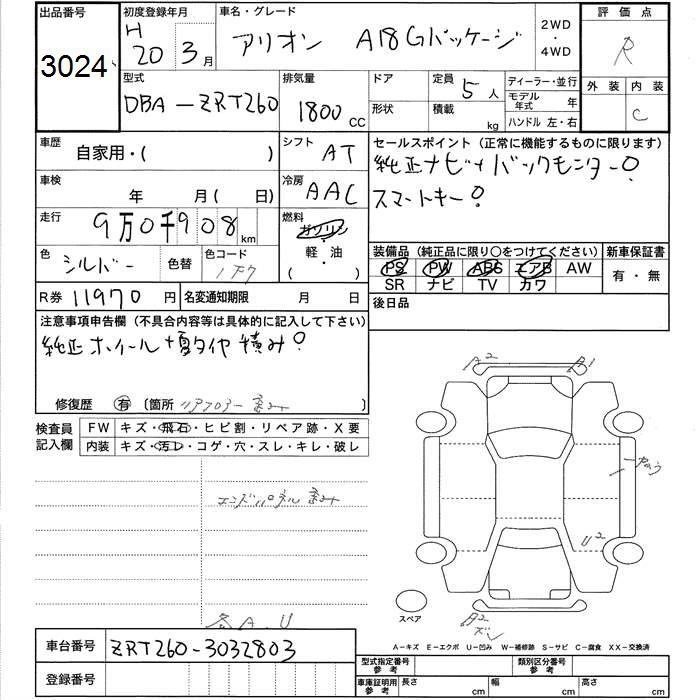 出品番号 初度登録年月 車名・グレード 2WD ・ 4WD 評価点
3024 H 20 3月 アリオン A18Gパッケージ R
型式 排気量 ドア 定員 ディーラー・並行 外装 内装
DBA-ZRT260 1800 CC 5人 モデル年式 年 C
形状 積載 kg ハンドル 左・右
車歴 自家用・( ) シフト AT セールスポイント(正常に機能するものに限ります)
純正ナビ+バックモンター!
車検 年 月( 日) 冷房 AAC スマートキー!
走行 9万0千908km 燃料 ガソリン・軽油 ( )
装備品(純正品に限り○をつけてください) 新車保証書
色 シルバー 色替 色コード 1F7
PS PW ABS エアB AW 有・無
SR ナビ TV カワ
R券 11970円 名変通知期限 月 日 後日品
注意事項申告欄(不具合内容等は具体的に記入して下さい)
純正ホイール+夏タイヤ積み!
修復歴 有 〔箇所 リアフロアー 〕
検査員記入欄 FW キズ・飛石・ヒビ割・リペア跡・X要
内装 キズ・汚レ・コゲ・穴・スレ・キレ・破レ
A2
B1
エンドパネル
U2
スペア
A2
各A.U
A-キズ E-エクボ U-凹み W-補修跡 S-サビ C-腐食 XX-交換済
車台番号 ZRT260-3032803
型式指定番号 参考 類別区分番号 参考
登録番号 車庫証明用 参考 長さ cm 幅 cm 高さ cm